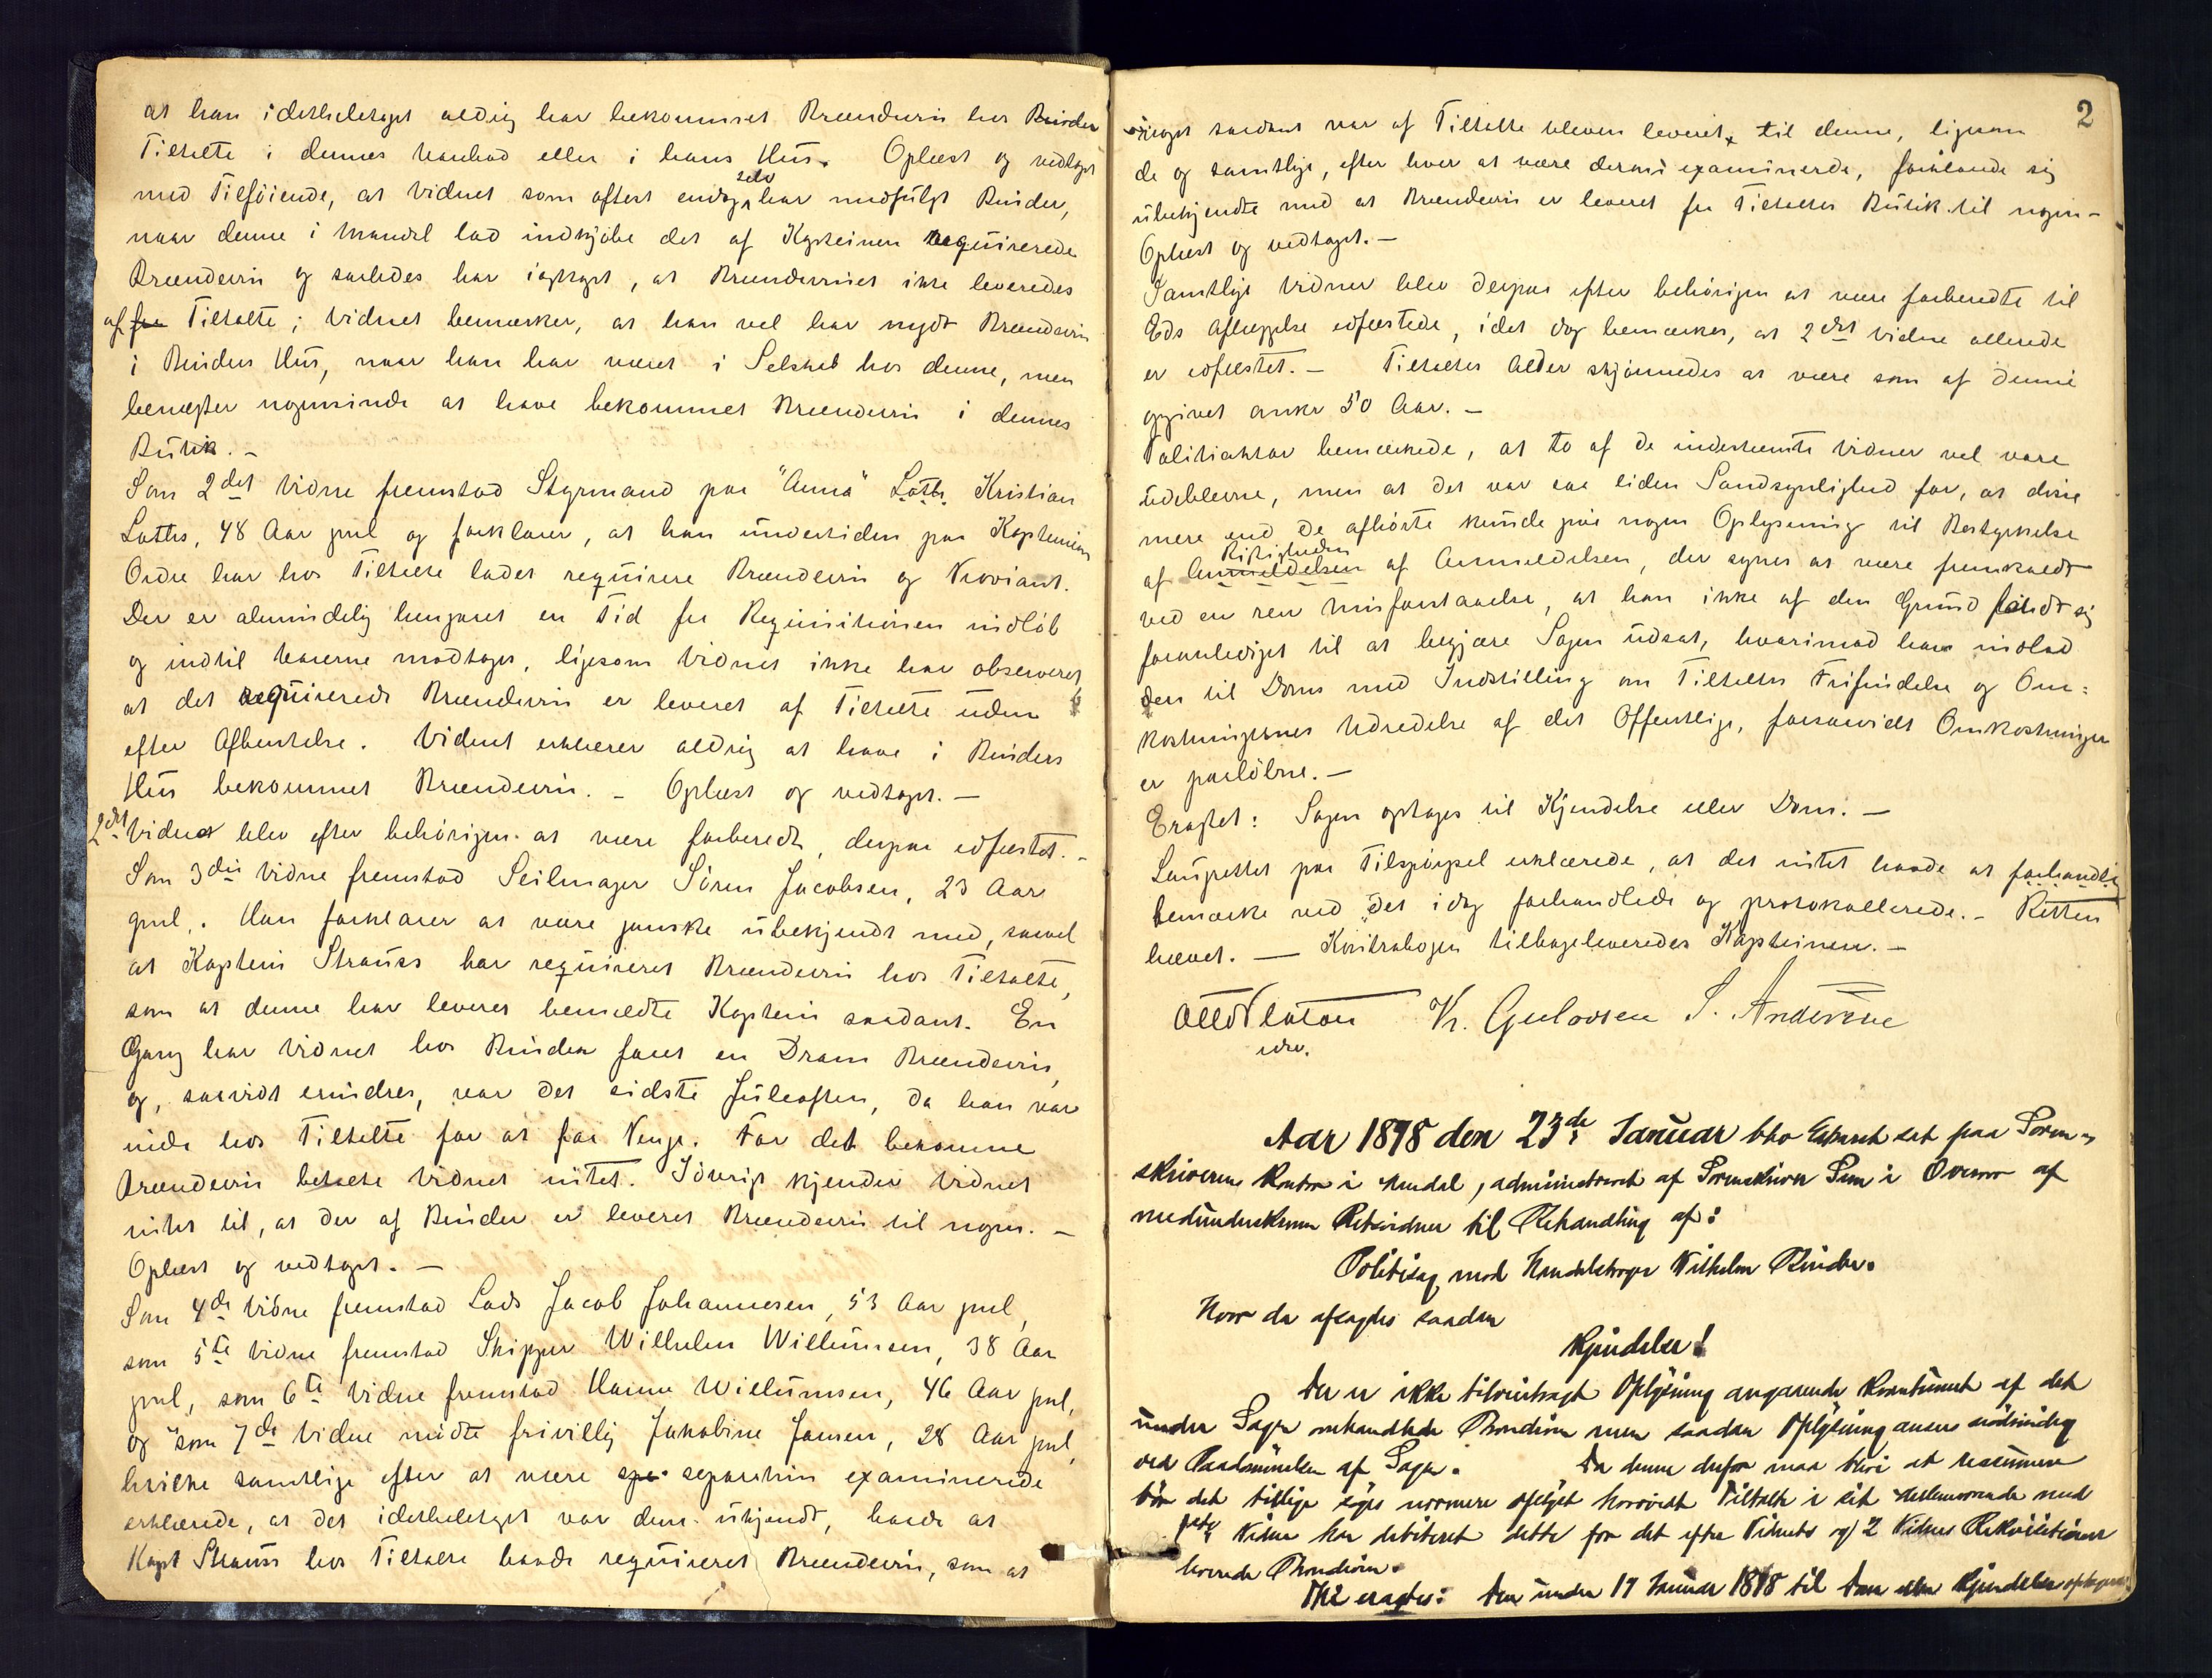 at han idetheletaget aldrig har bekommet Brændevin hos Rinder
Tiltalte i dennes Handel eller i hans Hus. Oplæst og vedtaget
med Tilføiende, at Vidnet som oftest endog selv har medfulgt Rinder,
naar denne i Mandal lod indkjøbe det af Kapteinen requirerede
Brændevin og saaledes har iagttaget, at Brændevinet ikke leveredes
af fra Tiltalte; Vidnet bemærker, at han vel har nydt Brændevin
i Rinders Hus, naar han har været i Selskab hos denne, men
benægter nogensinde at have bekommet Brændevin i dennes
Butik. -
Som 2det Vidne fremstod Styrmand paa "Anna" Loths Kristian
Loths, 48 Aar gml og forklarer, at han undertiden paa Kapteinens
Ordre har hos Tiltalte ladet requirere Brændevin og Proviant.
Der er almindelig hengaaet en Tid fra Requisitionen indløb
og indtil Varerne modtoges, ligesom Vidnet ikke har observeret,
at det requirerede Brændevin er leveret af Tiltalte uden
efter Afhentelse. Vidnet erklærer aldrig at have i Rinders
Hus bekommet Brændevin. - Oplæst og vedtaget. -
2det Vidnet blev efter behørigen at være forberedt, derpaa edfæstet. -
Som 3die Vidne fremstod Seilmager Sören Jacobsen, 23 Aar
gml. Han forklarer at være ganske ubekjendt med, saavel
at Kaptein Strauss har requireret Brændevin hos Tiltalte,
som at denne har leveret bemeldte Kaptein saadant. En
Gang har Vidnet hos Rinder faaet en Dram Brændevin,
og, saavidt erindres, var det sidste Juleaften, da han var
inde hos Tiltalte for at faa Penge. For det bekomne
Brændevin betalte Vidnet intet. Iövrigt kjender Vidnet
intet til, at der af Rinder er leveret Brændevin til nogen. -
Oplæst og vedtaget. -
Som 4de Vidne fremstod Lods Jacob Johannesen, 53 Aar gml,
som 5te Vidne fremstod Skipper Wilhelm Willumsen, 38 Aar
gml, som 6te Vidne fremstod Hanne Willumsen, 46 Aar gml,
og som 7de Vidne mødte frivillig Jakobine Jansen, 28 Aar gml,
hvilke samtlige efter at være spe separatim examinerede
erklærede, at det idetheletaget var dem ukjendt, baade at
Kapt Strauss hos Tiltalte havde requireret Brændevin, som at
2
noget saadant var af Tiltalte bleven leveret til denne, ligesom
de og samtlige, efter hver at være derom examinerede, forklarede sig
ubekjendte med at Brændevin er leveret fra Tiltaltes Butik til nogen -
Oplæst og vedtaget. -
Samtlige Vidner blev derpaa efter behørigen at være forberedte til
Eds Aflæggelse edfæstede, idet dog bemærkes, at 2det Vidne allerede
er edfæstet. - Tiltaltes Alder skjønnedes at være som af denne
opgivet omkr 50 Aar. -
Politiaktor bemærkede, at to af de indstevnte Vidner vel vare
udeblevne, men at det var saa liden Sandsynlighed for, at disse
mere end de afhørte kunde give nogen Oplysning til Bestyrkelse
af Rigtigheden Anmeldelsen af Anmeldelsen, der synes at være fremkaldt
ved en ren Misforstaaelse, at han ikke af den Grund fandt sig
foranlediget til at begjære Sagen udsat, hvorimod han indlod
den til Doms med Indstilling om Tiltaltes Frifindelse og Om-
kostningernes Udredelse af det Offentlige, forsaavidt Omkostninger
er paaløbne. -
Eragtet: Sagen optages til Kjendelse eller Dom. -
Laugrettet paa Tilspørgsel erklærede, at det intet havde at forhandle
bemærke ved det idag forhandlede og protokollerede. - Retten
hævet. - Kontrabogen tilbageleveredes Kapteinen. -
Kr. Gulovsen S. Andersene
Aar 1898 den 23de Januar blev Extraret sat paa Soren-
skriverens Kontor i Mandal, administreret af Sorenskriver Sem i Overvær af
medunderskrevne Retsvidner til Behandling af:
Politisag mod Handelsborger Vilhelm Rinder.
Hvor da afsagdes saadan
Kjendelse!
Der er ikke tilveiebragt Oplysning angaaende Kvantumet af det
under Sagen omhandlede Brændevin men saadan Oplysning ansees nødvendig
ved Paadømmelsen af Sagen. Da denne derfor maa blive at reassumere
bør det tillige søges nærmere oplyst hvorvidt Tiltalte i sit Mellemværende med
Vidne har debiteret dette for det efter Vidnets og 2 Vidnes Rekvisitioner
leverede Brændevin.
Thi eragtes: Den under 17 Januar 1898 til Dom eller Kjendelse optagne